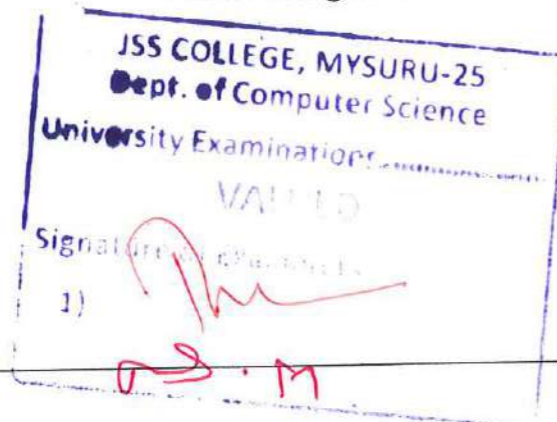 JSS COLLEGE, MYSURU-25
Dept. of Computer Science
University Examinations
Signature of
1)